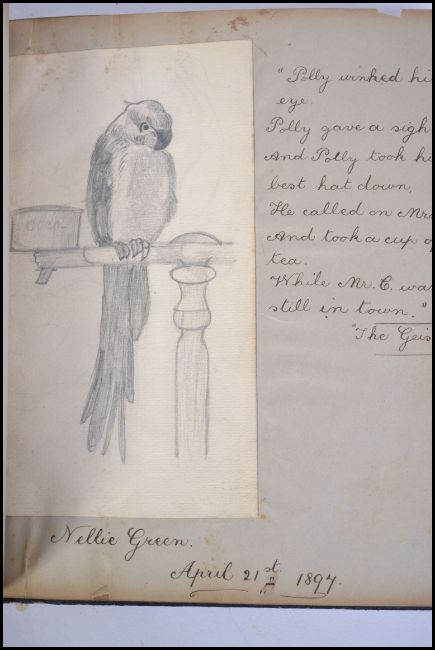 "Polly winked hi
eye.
Polly gave a sigh
And Polly took hi
best hat down,
He called on Mrs
And took a cup o
tea.
While Mr. C. wa
still in town."
"The Geis
Nellie Green.
April 21st 1897.